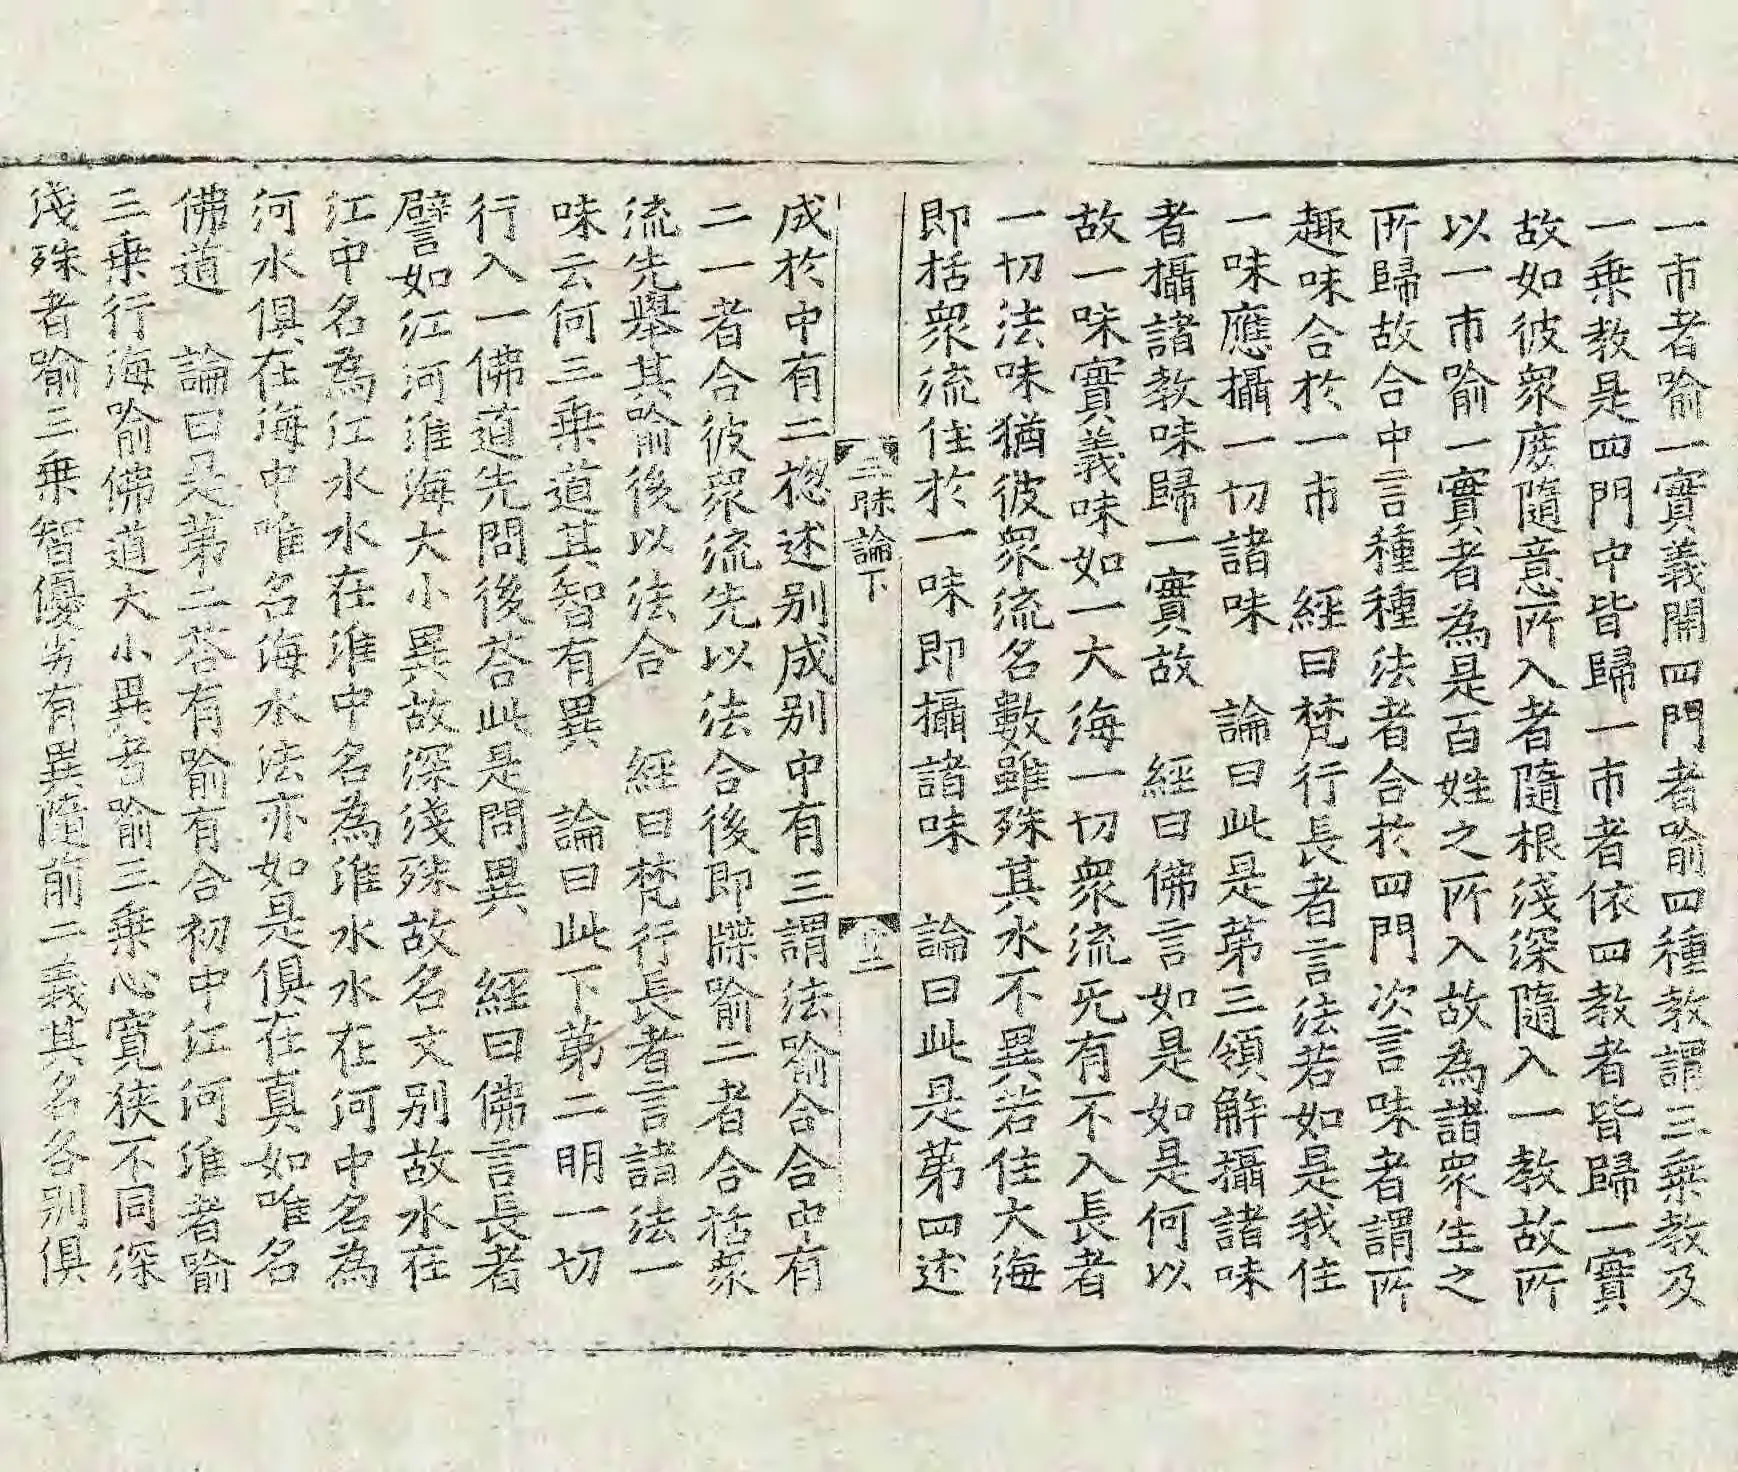 一市者喻一實義開四門者喻四種教謂三乗教及
一乗教是四門中皆歸一市者依四教者皆歸一實
故如彼衆庻隨意所入者隨根淺深隨入一教故所
以一市喻一實者為是百姓之所入故為諸衆生之
所歸故合中言種種法者合於四門次言味者謂所
趣味合於一市　經曰梵行長者言法若如是我住
一味應攝一切諸味　論曰此是苐三領解攝諸味
者攝諸教味歸一實故　經曰佛言如是如是何以
故一味實義味如一大海一切衆流旡有不入長者
一切法味猶彼衆流名數雖殊其水不異若住大海
即括衆流住於一味即攝諸味　論曰此是苐四述
三昧論下
廿二
成於中有二揔述别成别中有三謂法喻合合中有
二一者合彼衆流先以法合後即牒喻二者合括衆
流先舉其喻後以法合　經曰梵行長者言諸法一
味云何三乗道其智有異　論曰此下苐二明一切
行入一佛道先問後荅此是問異　經曰佛言長者
譬如江河淮海大小異故深淺殊故名文别故水在
江中名為江水水在淮中名為淮水水在河中名為
河水俱在海中唯名海水法亦如是俱在真如唯名
佛道　論曰是苐二荅有喻有合初中江河淮者喻
三乗行海喻佛道大小異者喻三乗心寬狹不同深
淺殊者喻三乗智優劣有異隨前二義其名各别俱